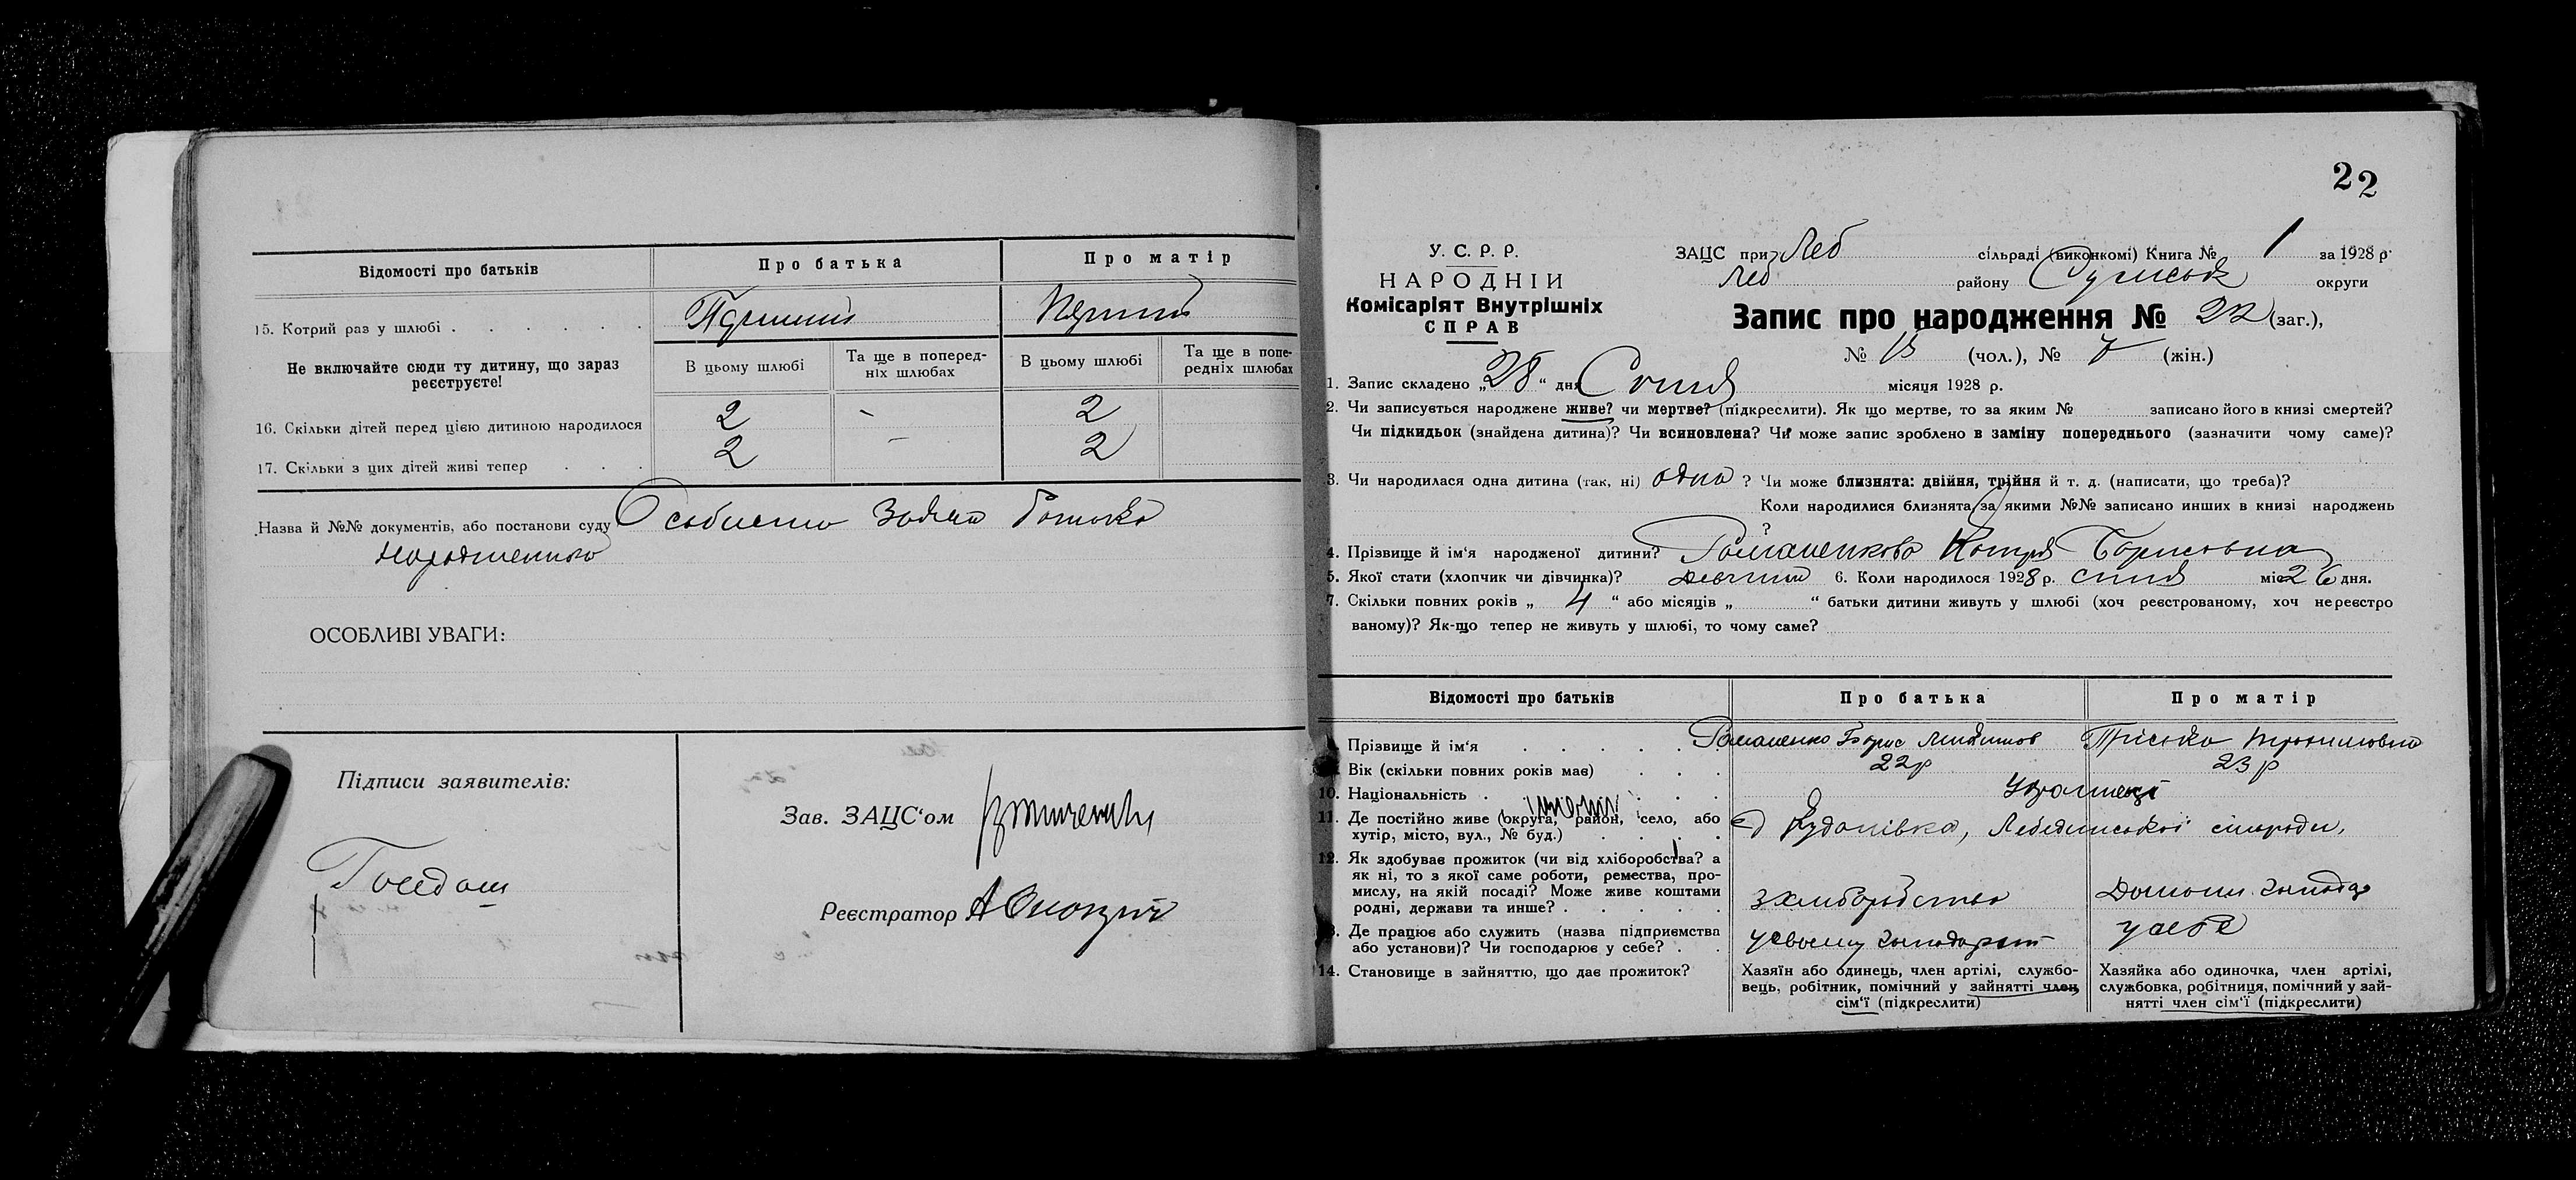 Відомості про батьків
Про батька
Про матір
15. Котрий раз у шлюбі . . . . . .
Перший
Перший
Не включайте сюди ту дитину, що зараз реєструєте!
В цьому шлюбі
Та ще в поперед-
ніх шлюбах
В цьому шлюбі
Та ще в попе-
редніх шлюбах
16. Скільки дітей перед цією дитиною народилося
2 - 2
17. Скільки з цих дітей живі тепер . . .
2 - 2
Назва й №№ документів, або постанови суду Особиста Заява Батька
народженного
ОСОБЛИВІ УВАГИ:
Підписи заявителів:
Зав. ЗАЦС‘ом
Реєстратор
22
У. С. Р. Р.
НАРОДНІЙ
Комісаріят Внутрішніх
СПРАВ
ЗАЦС при Леб сільраді (виконкомі) Книга № 1 за 1928 р.
Леб району Сумськ округи
Запис про народження № 22 (заг.),
№ 15 (чол.), № 7 (жін.)
1. Запис складено „28“ дня Січня місяця 1928 р.
2. Чи записується народжене живе? чи мертве? (підкреслити). Як що мертве, то за яким № записано його в книзі смертей?
Чи підкидьок (знайдена дитина)? Чи всиновлена? Чи може запис зроблено в заміну попереднього (зазначити чому саме)?
3. Чи народилася одна дитина (так, ні) одна ? Чи може близнята: двійня, трійня й т. д. (написати, що треба)?
Коли народилися близнята за якими №№ записано инших в книзі народжень
?
4. Прізвище й ім‘я народженої дитини? Романенкова Катря Борисовна
5. Якої стати (хлопчик чи дівчинка)? дівчина 6. Коли народилося 1928 р. січня міс 26 дня.
7. Скільки повних років „ 4 “ або місяців „ “ батьки дитини живуть у шлюбі (хоч реєстрованому, хоч нереєстро
ваному)? Як-що тепер не живуть у шлюбі, то чому саме?
Відомості про батьків
Про батька
Про матір
Прізвище й ім‘я . . . . .
Романенко Борис
Пріська
Вік (скільки повних років має) . . .
22р
23р
10. Національність . . . . .
Українці
11. Де постійно живе (округа, район, село, або
хутір, місто, вул., № буд.) . . . .
Лебединської сільради,
12. Як здобуває прожиток (чи від хліборобства? а
як ні, то з якої саме роботи, ремества, про-
мислу, на якій посаді? Може живе коштами
родні, держави та инше? . . . . .
з хліборобства
Домашн. господар
13. Де працює або служить (назва підприємства
або установи)? Чи господарює у себе? . .
у своєму господарст
у себе
14. Становище в зайняттю, що дає прожиток?
Хазяїн або одинець, член артілі, службо-
вець, робітник, помічний у зайнятті член
сім‘ї (підкреслити)
Хазяйка або одиночка, член артілі,
службовка, робітниця, помічний у зай-
нятті член сім‘ї (підкреслити)